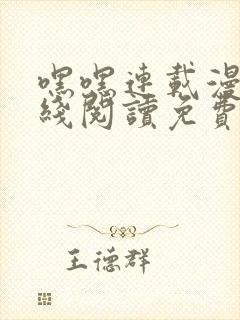 嘿嘿連載漫
綫閱讀免費
王德群